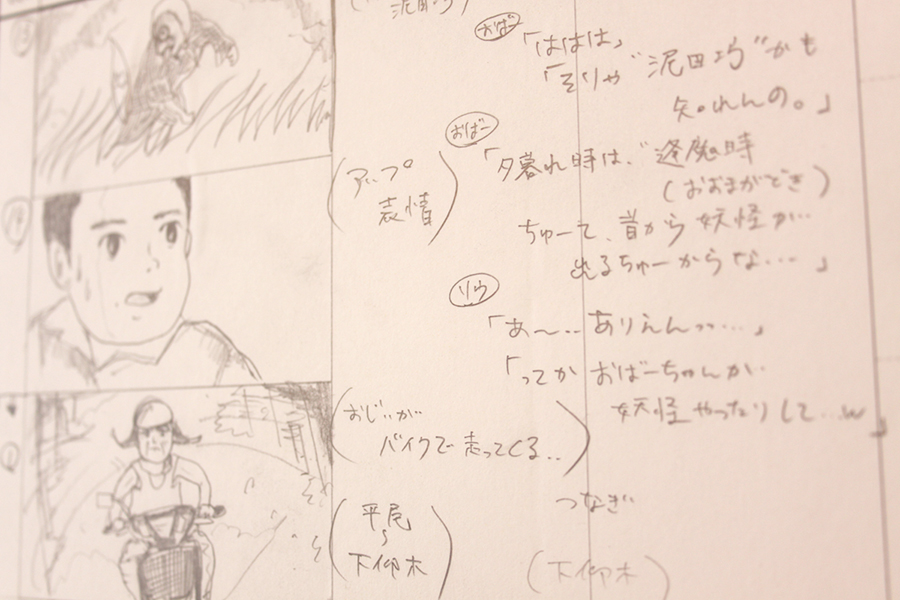 (泥田坊)
おばー
「ははは」
「そりゃ"泥田坊"かも
知れんの。」
(アップ
表情)
おばー
「夕暮れ時は、"逢魔時
(おおまがとき)
ちゅーて、昔から妖怪が…
出るちゅーからな…」
リウ
「あ〜‥ありえんっっ…」
「ってか おばーちゃんが
妖怪やったりして…w」
(おじぃが
バイクで走ってくる‥)
つなぎ
(平尾
〜
下仰木)
(下仰木)